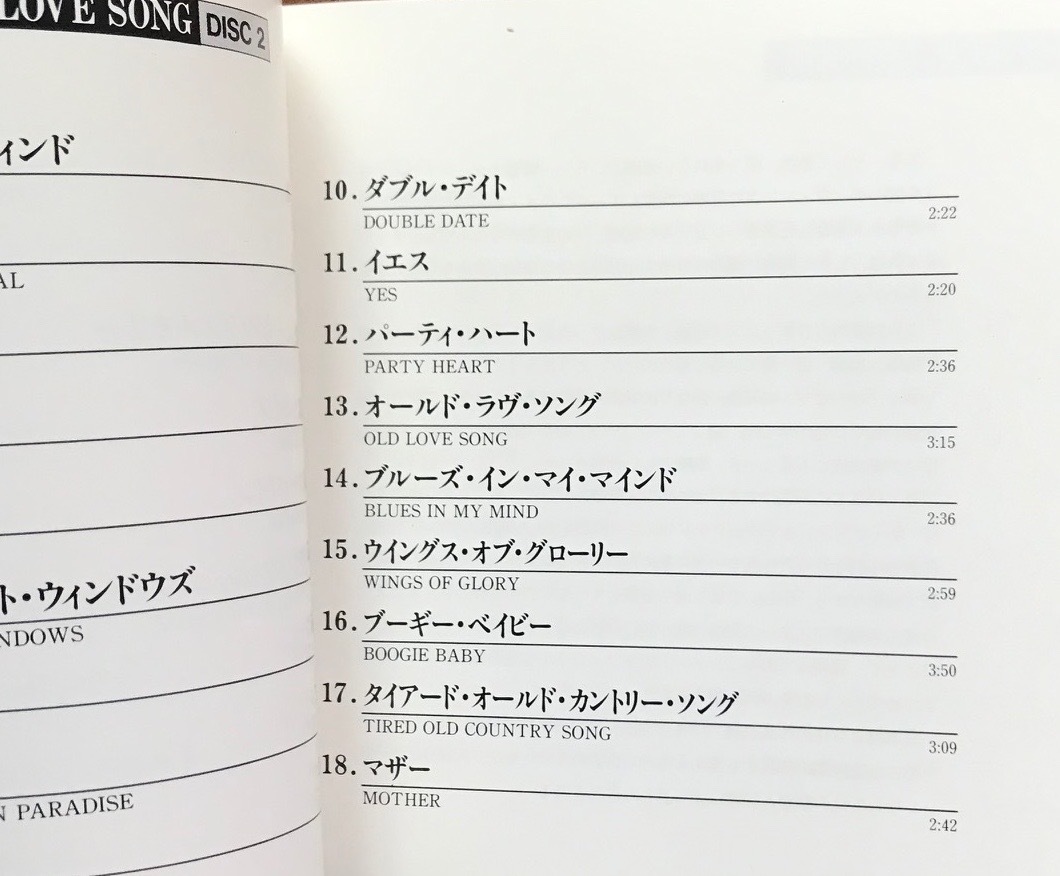 LOVE SONG DISC 2
ィンド
AL
ト・ウィンドウズ
NDOWS
N PARADISE
10. ダブル・デイト
DOUBLE DATE 2:22
11. イエス
YES 2:20
12. パーティ・ハート
PARTY HEART 2:36
13. オールド・ラヴ・ソング
OLD LOVE SONG 3:15
14. ブルーズ・イン・マイ・マインド
BLUES IN MY MIND 2:36
15. ウイングス・オブ・グローリー
WINGS OF GLORY 2:59
16. ブーギー・ベイビー
BOOGIE BABY 3:50
17. タイアード・オールド・カントリー・ソング
TIRED OLD COUNTRY SONG 3:09
18. マザー
MOTHER 2:42